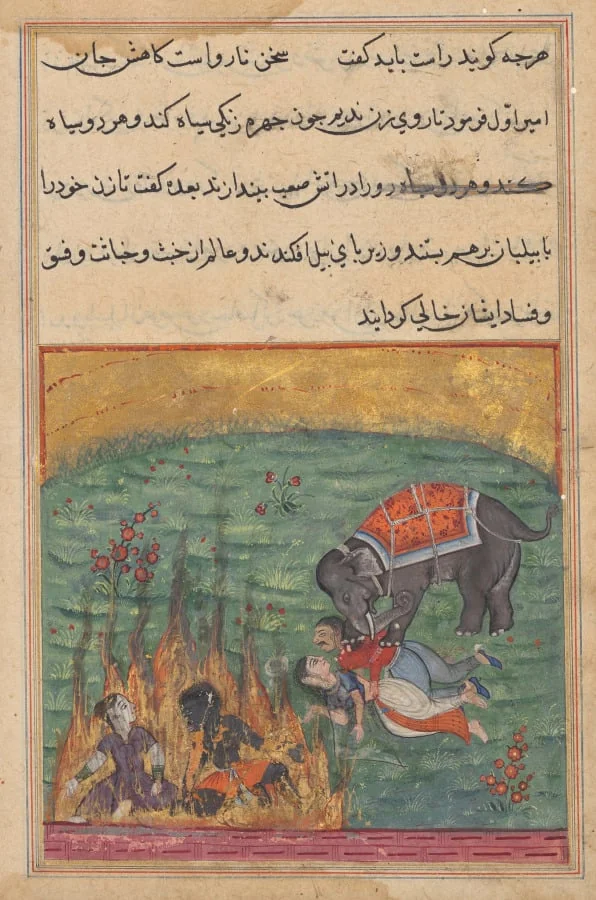 هرجه کویند راست باید کفت سخن نارواست کاهش جان
امیر اوّل فرمود تا روي زن ندیم جون جهره زنکي سیاه کند و هر دو سیاه
کند و هر دو سیاه رو را در اتش صعب بیندازند بعده کفت تا زن خود را
با بیلبان بر هم بستند و زیر باي بیل افکندند و عالم از خبث و خباثت و فسق
و فساد ایشان خالي کردایند